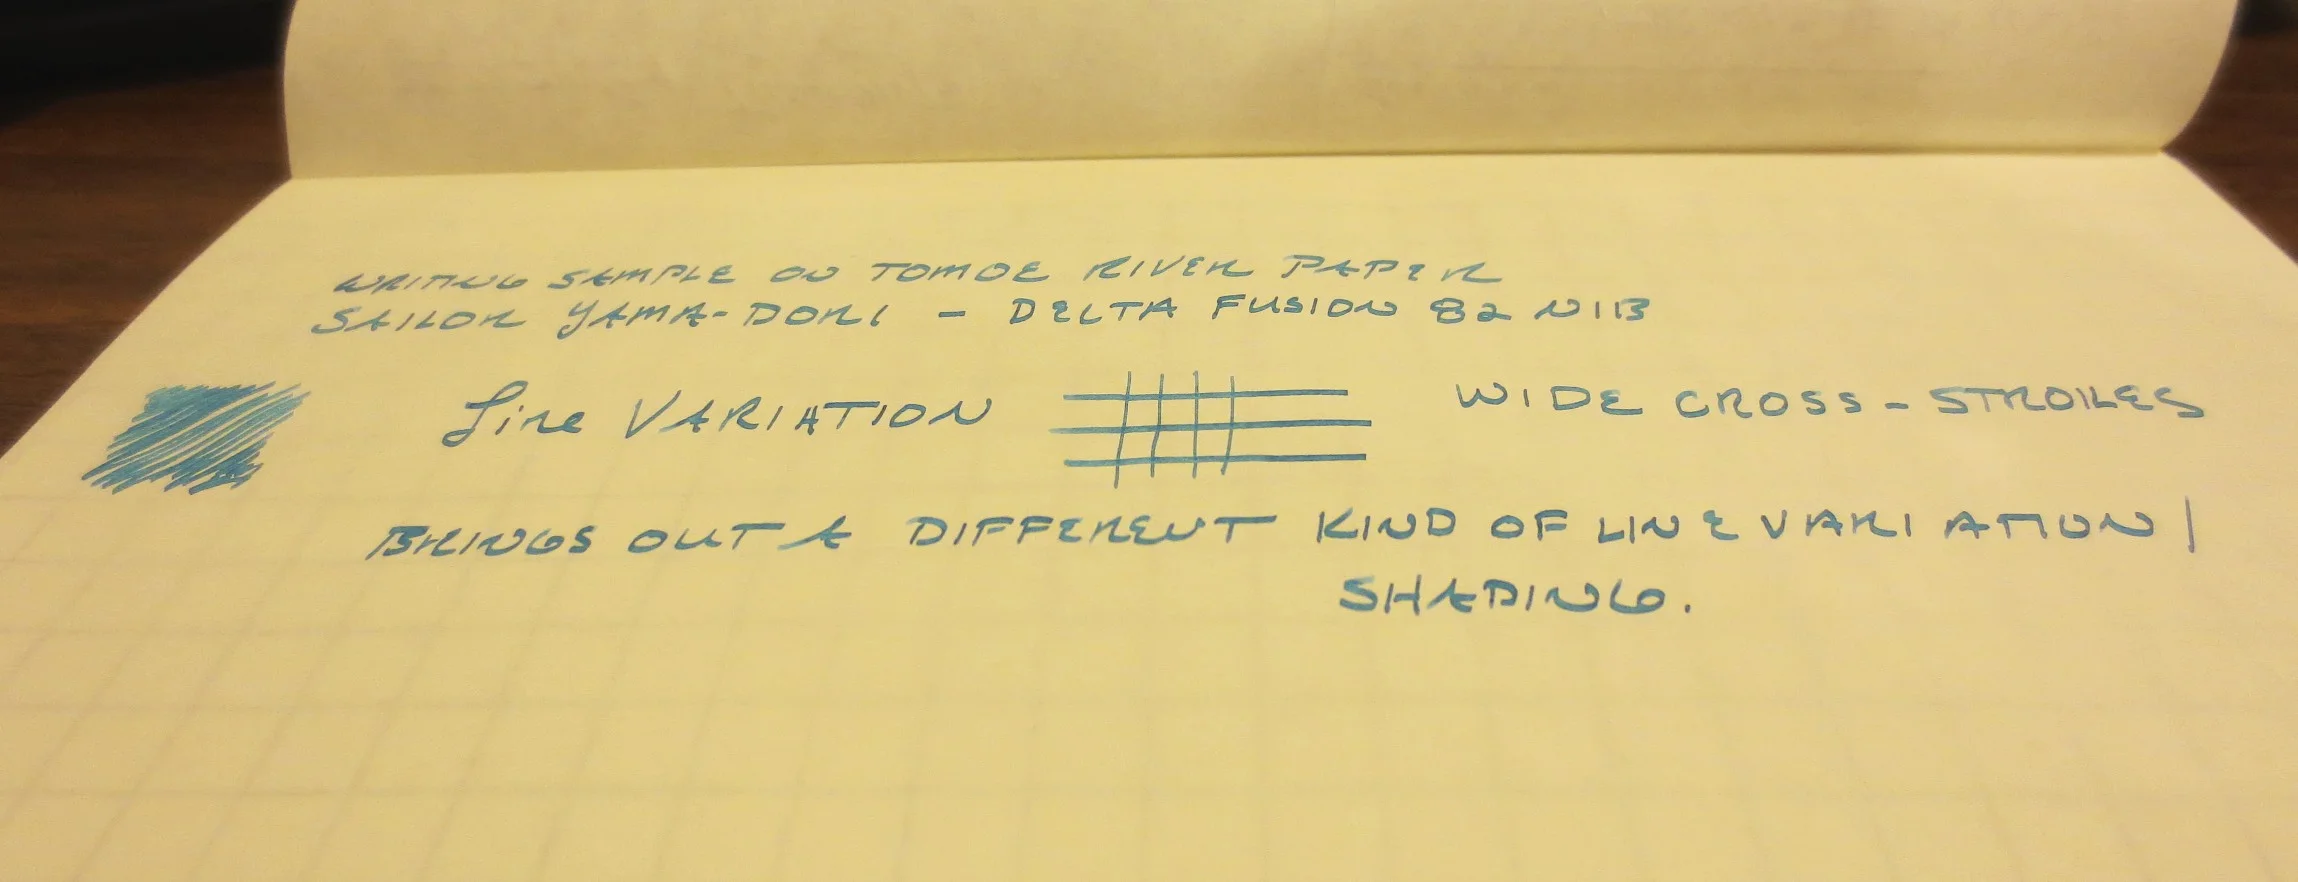 WRITING SAMPLE ON TOMOE RIVER PAPER
SAILOR YAMA-DORI - DELTA FUSION 82 NIB
Line VARIATION WIDE CROSS-STROKES
BRINGS OUT A DIFFERENT KIND OF LINE VARIATION /
SHADING.